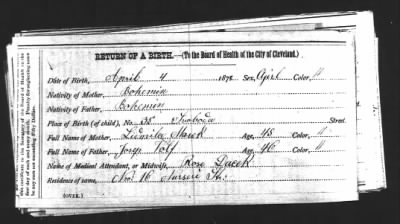 RETURN OF A BIRTH.—(To the Board of Health of the City of Cleveland.)
Date of Birth, April 4 187 Sex, Girl Color, "
Nativity of Mother, Bohemia
Nativity of Father, Bohemia
Place of Birth (of child), No. 35 Street
Full Name of Mother, Marek Age, 45 Color "
Full Name of Father, Age, 46 Color "
Name of Medical Attendant, or Midwife, Rose
Residence of same, No 16 Nursery St.
(OVER.)